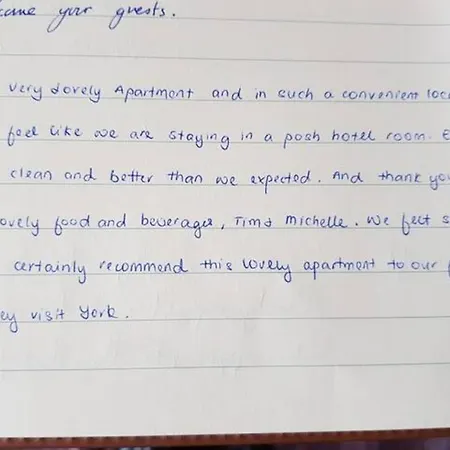 your guests.
very lovely Apartment and in such a convenient
feel like we are staying in a posh hotel room.
clean and better than we expected. And thank
food and beverages, Tim & Michelle. We felt
certainly recommend this lovely apartment to our
visit York.